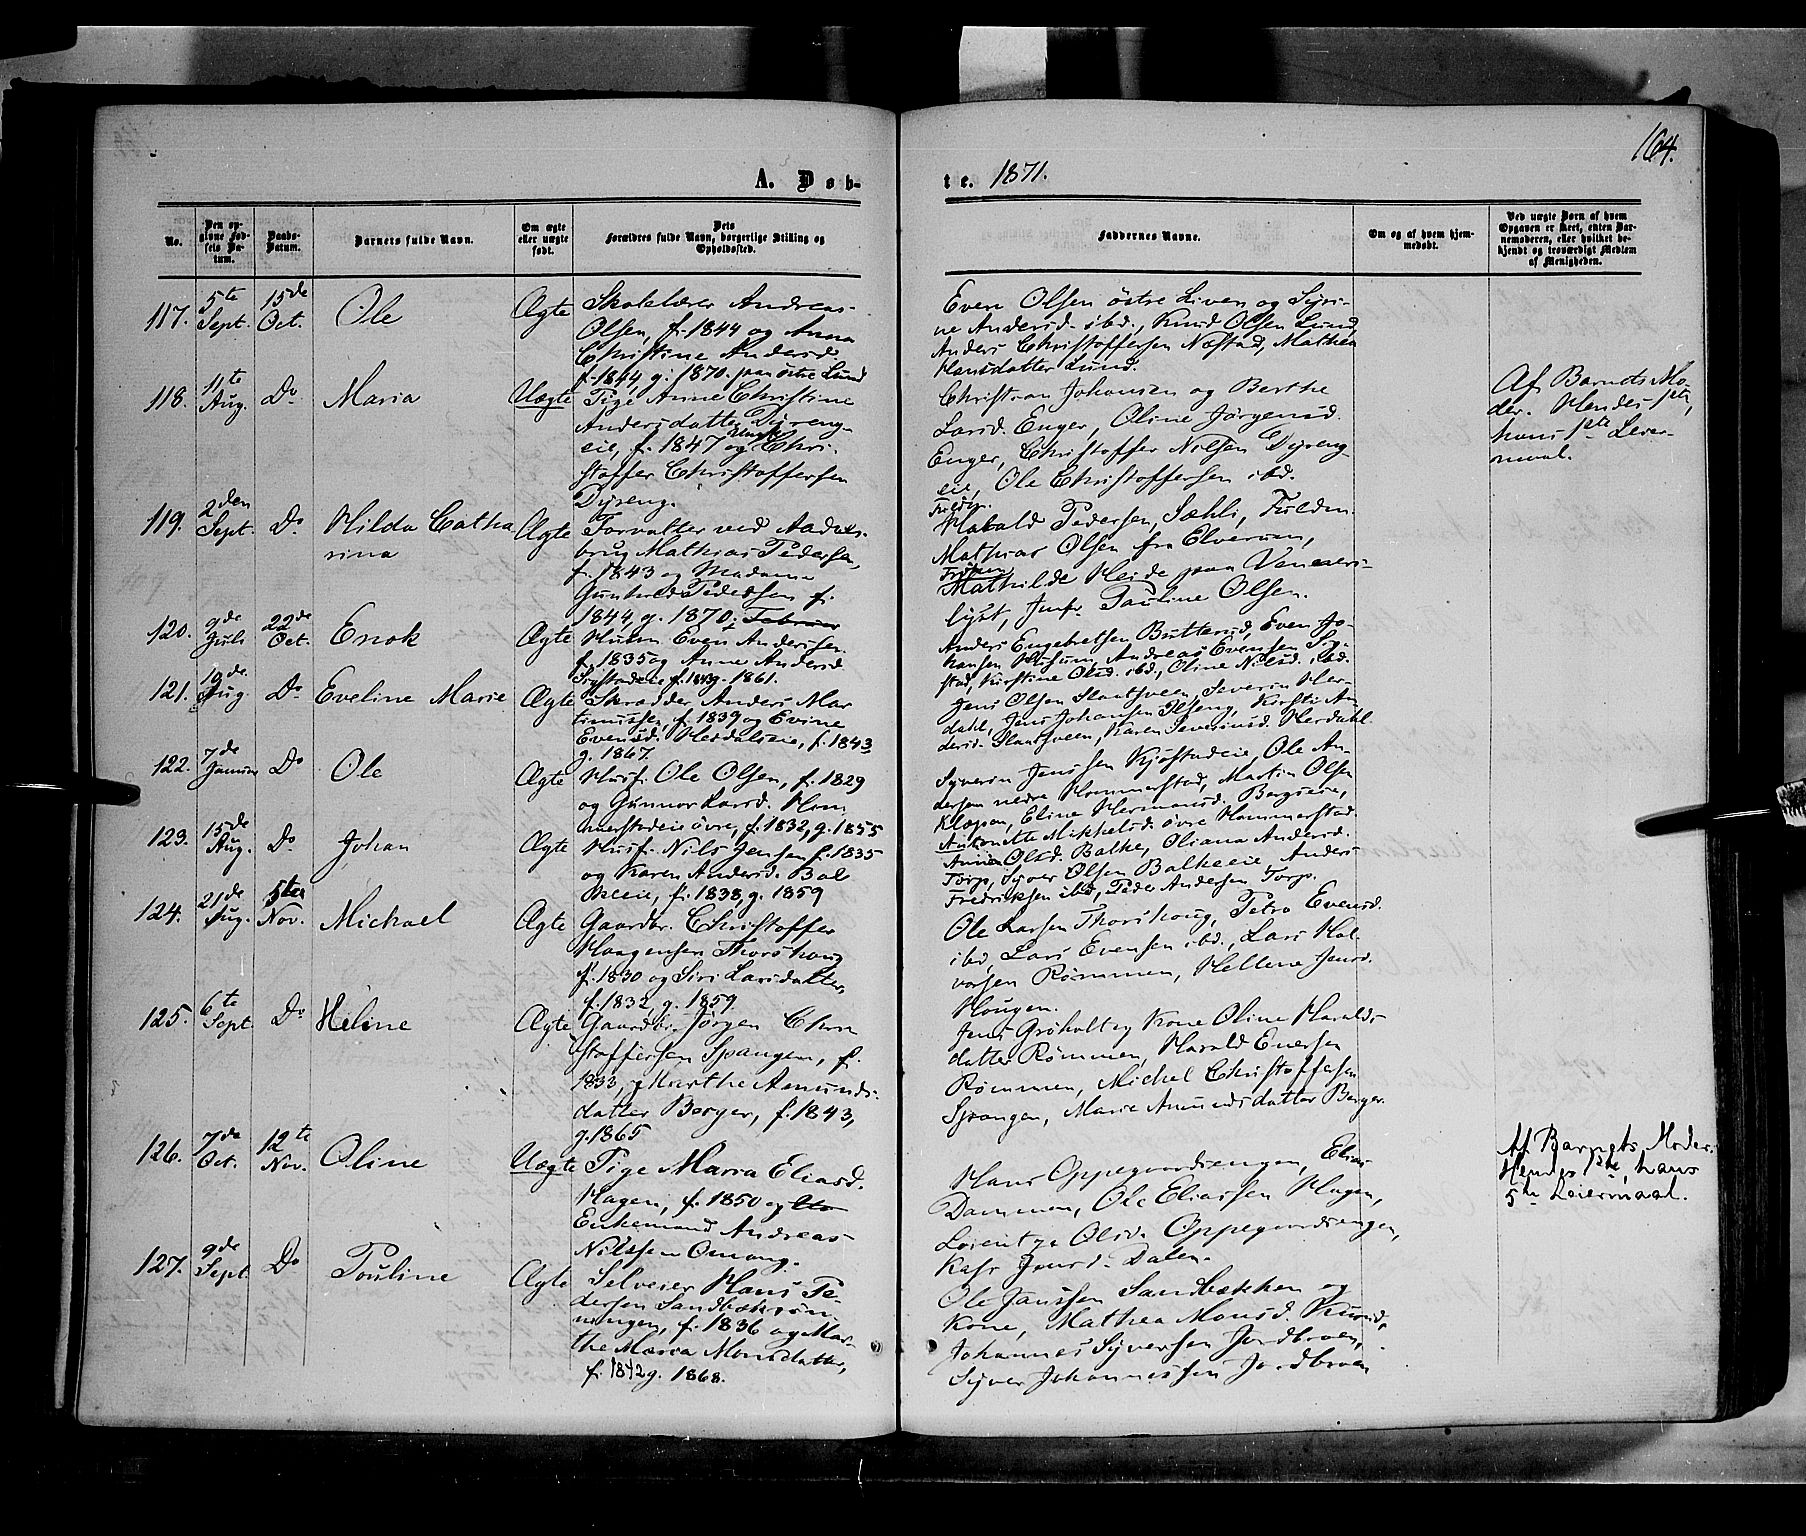 164.
A. Døb-
te. 1871.
No.
Den opgivne Fødsels Datum.
Daabs-Datum.
Barnets fulde Navn.
Om ægte eller uægte født.
Dets Forældres fulde Navn, borgerlige Stilling og Opholdssted.
Faddernes Navne.
Om og af hvem hjemmedøbt.
Ved uægte Børn af hvem Opgaven er skeet, enten Barnemoderen, eller hvilket bekjendt og troværdigt Medlem af Menigheden.
117. 5te Sept. 15de Oct. Ole Ægte
Skolelærer Andreas
Olsen, f. 1844 og Anna
Christine Andersd.
f. 1844, g. 1870. paa østre Lund
Even Olsen östre Liven og Syri-
ne Andersd. ibd., Knud Olsen Lund,
Anders Christoffersen Næstad, Mathea
Hansdatter Lund.
118. 11te Aug. Do Maria Uægte
Pige Anne Christine
Andersdatter Dyreng-
eie, f. 1847 og Chri-
stoffer Christoffersen
Dyreng.
Christian Johansen og Berthe
Larsd. Enger, Oline Jørgensd.
Enger, Christoffer Nilsen Dyreng
eie, Ole Christoffersen ibd.
Af Barnets Mo-
der. Hendes 1ste,
hans 1ste Leier-
maal.
119. 2den Sept. Do Hilda Catha
rina Ægte
Forvalter ved Aadals-
brug Mathias Pedersen,
f. 1843 og Madame
Gunhild Pedersen f.
1844, g. 1870, Februar
Harald Pedersen, Sæhli,
Mathias Olsen fra Elverum,
Frøken
Mathilde Heide paa
lyst, Jmfr. Pauline Olsen.
120. 9de Juli 22de Oct. Enok Ægte
Husm. Even Andersen
f. 1835 og Anne Andersd
f. 1843 g. 1861.
Anders Engebretsen Butterud, Even Jo-
hansen Husum, Andreas Evensen Sy-
stad, Kirstine Olsd. ibd., Oline Nilsd. ibd.
121. 19de Aug. Do Eveline Marie Ægte
Skrædder Anders Mar
tinussen, f. 1839 og Evine
Evensd. Herdalseie, f. 1843
g. 1867.
Jens Olsen Slaatsveen, Severin Her-
dahl, Jens Johansen Ilseng, Kirsti An
dersd. Slaatsveen, Karen Severinsd. Herdahl.
122. 7de Januar Do Ole Ægte
Husf. Ole Olsen, f. 1829
og Gunnor Larsd. Hom
merstadeie övre, f. 1832, g. 1855
Syverin Jenssen Kjöstadeie, Ole An-
dersen nedre Hommerstad, Martin Olsen
Klæpen, Eline Hermansd. Bergseie,
Antonette Mikkelsd. övre Hommerstad.
123. 15de Aug. Do Johan Ægte
Husf. Nils Jensen f. 1835
og Karen Andersd. Bal
keeie, f. 1838, g. 1859
Anne Olsd. Balke, Oliana Andersd.
Torp, Syver Olsen Balkeeie, Anders
Fredriksen ibd, Peder Andersen Torp.
124. 21de Aug. 5te Nov. Michael Ægte
Gaardbr. Christoffer
Haagensen Thorshoug
f. 1830 og Siri Larsdatter,
f. 1832, g. 1859.
Ole Larsen Thorshoug, Petra Evensd.
ibd, Lars Evensen ibd., Lars Hal-
vorsen Römmen, Hellene Jensd.
Hougen.
125. 6te Sept. Do Heline Ægte
Gaardbr. Jörgen Chri
stoffersen Spangen, f.
1833, g Marthe Amunds-
datter Berger, f. 1843,
g. 1865
Jens Gröholt og Kone Oline Haralds
datter Römmen, Harald Enersen
Römmen, Michel Christoffersen
Spangen, Marie Amundsdatter Berger.
126. 7de Oct. 12te Nov. Oline Uægte
Pige Maria Eliasd.
Hagen, f. 1850 og
Enkemand Andreas
Nilssen Omang.
Hans Oppegaardengen, Elias
Dammen, Ole Eliassen Hagen,
Lorentze Olsd. Oppegaardengen,
Jensd. Dalen.
Af Barnets Moder.
Hendes 1ste, hans
5te Leiermaal.
127. 9de Sept Do Pouline Ægte
Selveier Hans Pe-
dersen Sandbækrön-
ningen, f. 1836 og Mar-
the Maria Monsdatter,
f. 1842 g. 1868.
Ole Janssen Sandbækken og
Kone, Mathea Monsd.
Johannes Syversen Jordbroen,
Syver Johannessen Jordbroen